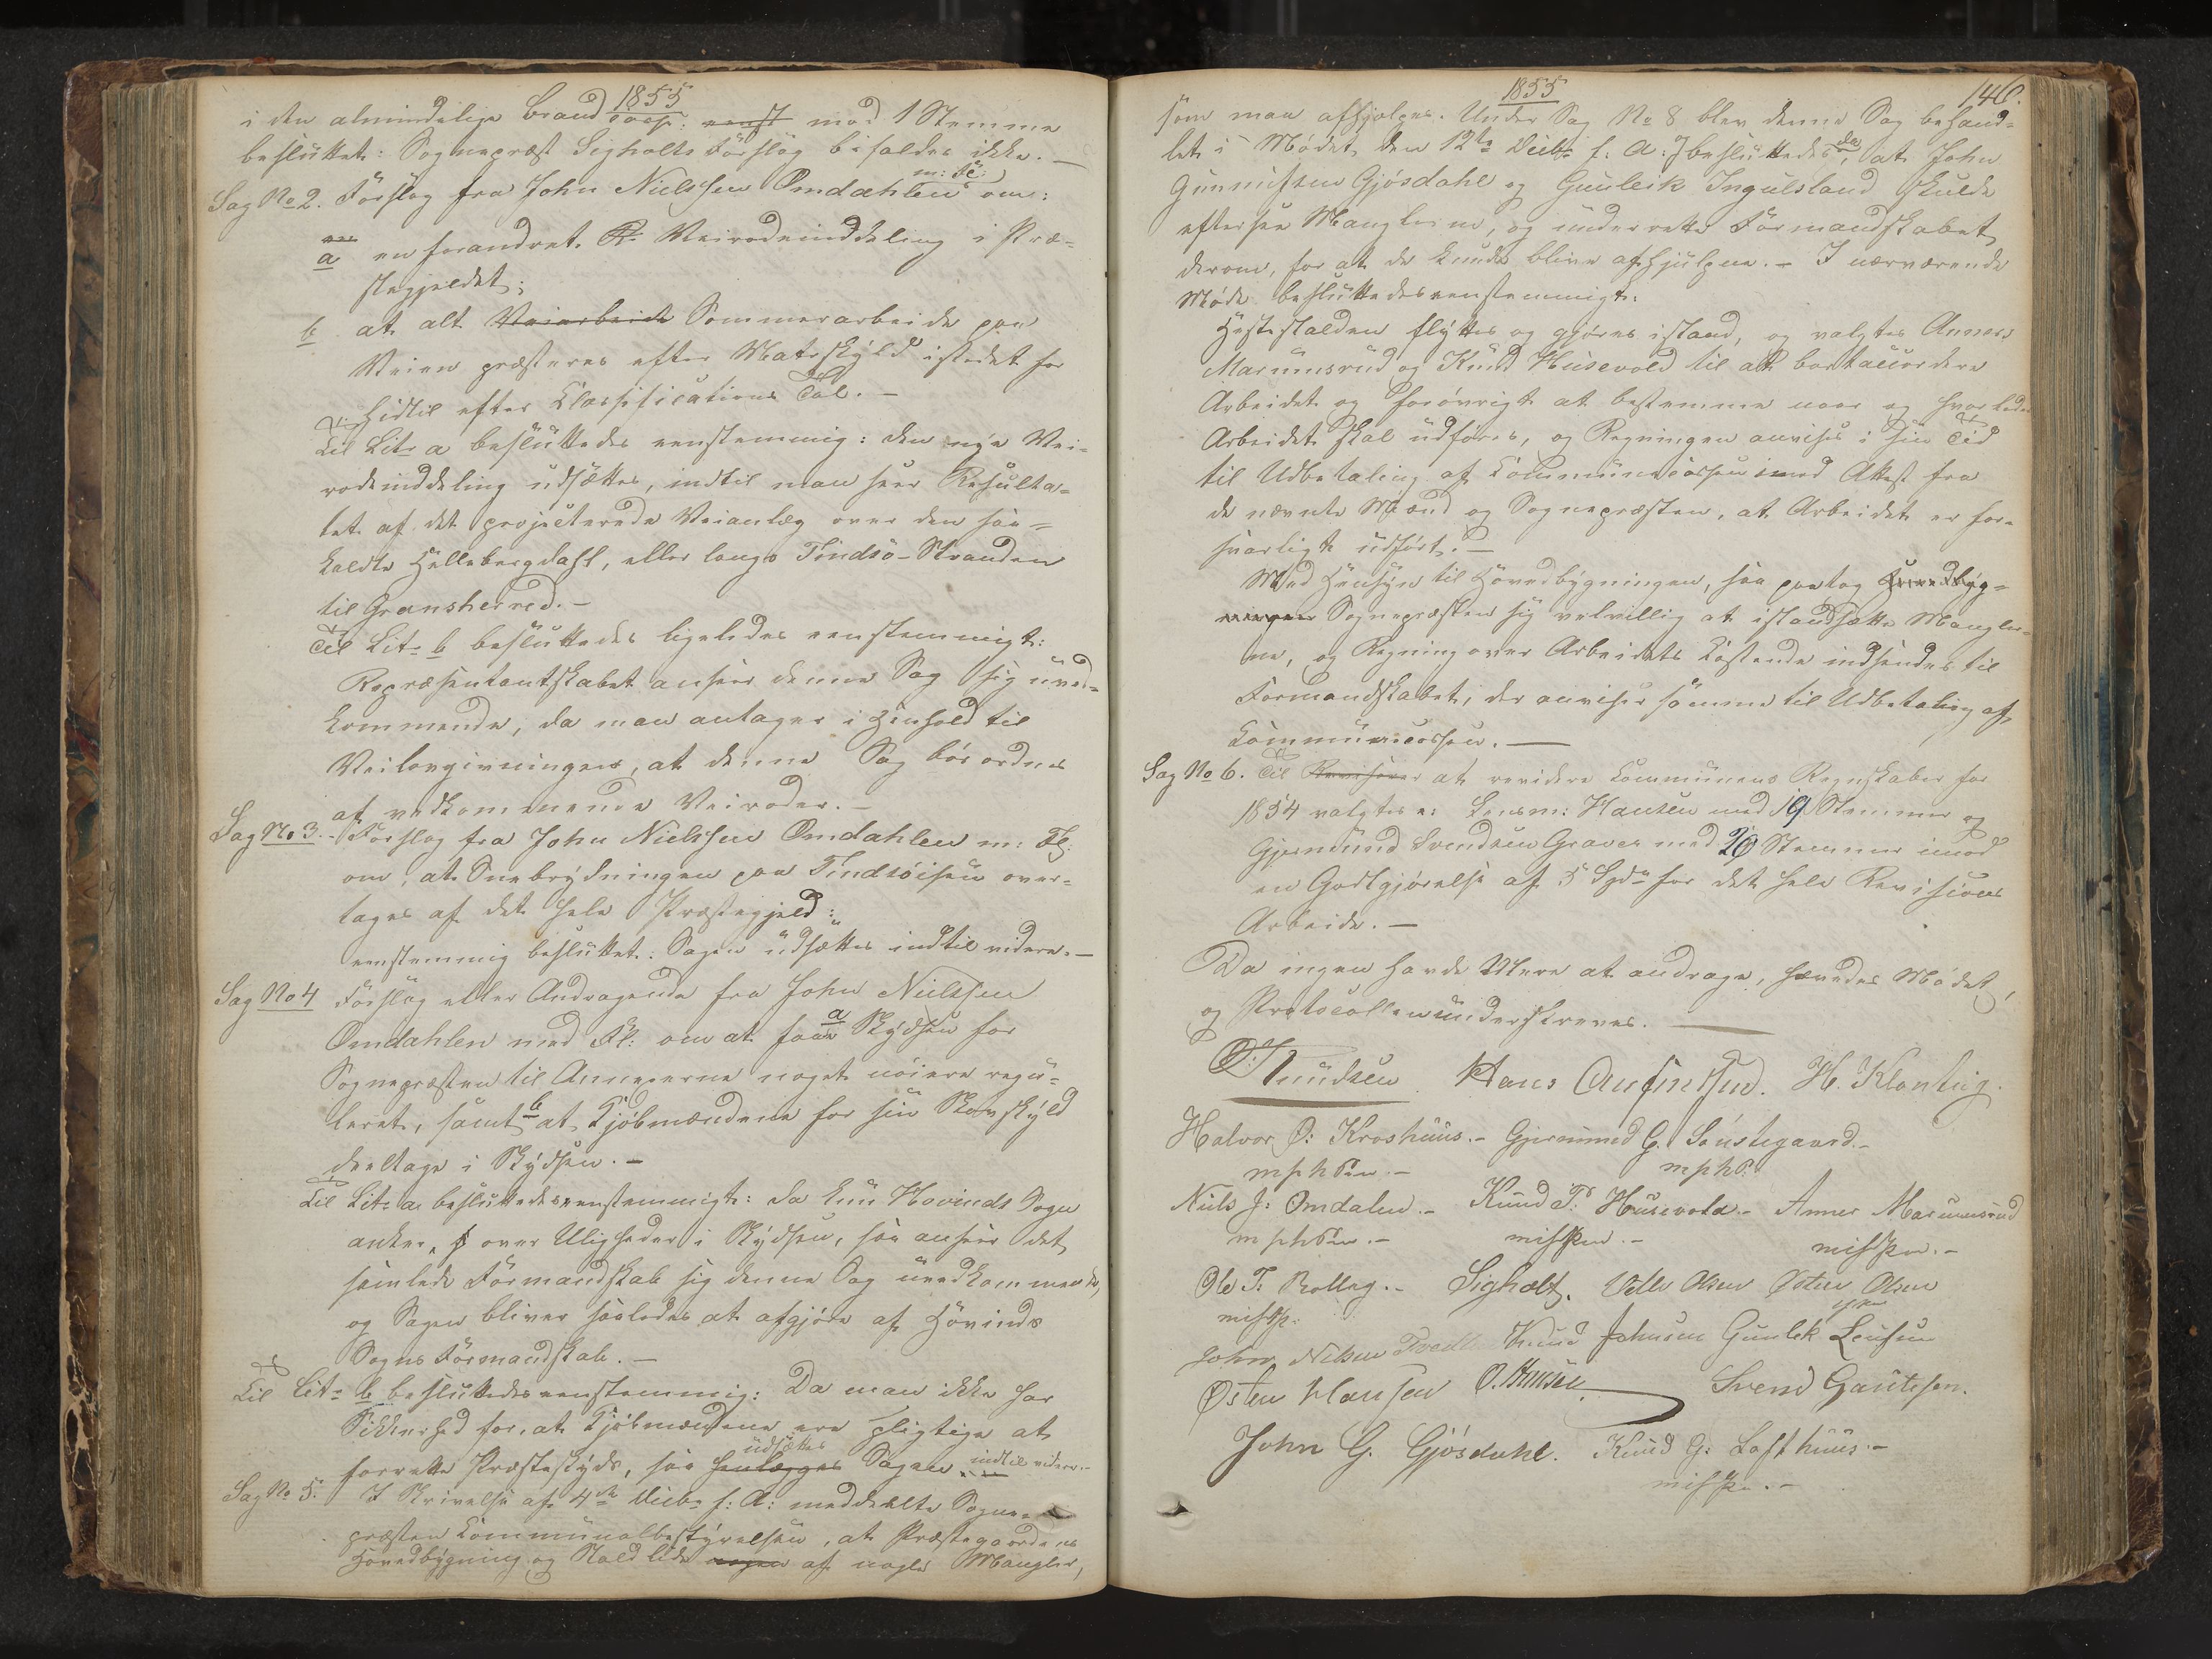 1855
i den almindelige Brandcasse: eenst mod 1 Stemme
besluttet: Sognepræst Sigholts Forslag bifaldes ikke. —
Sag No 2. Forslag fra John Nielssen Omdahlen m: Fl: om:
a en forandret Veirodeinddeling i Præ-
stegjeldet;
b at alt Veiarbeide Sommerarbeide paa
Veien præsteres efter Matrskyld istedet for
hidtil efter Classifications Tal. —
Til Litr a besluttedes eenstemmig: den nye Vei-
rodeinddeling udsættes, indtil man seer Resulta-
tet af det projecterede Veianlæg over den saa-
kaldte Hellebergdahl, eller langs Tindsø-Stranden
til Gransherred. —
Til Litr b besluttedes ligeledes eenstemmigt:
Repræsentantskabet anseer denne Sag sig uved-
kommende, da man antager i Henhold til
Veilovgivningen, at denne Sag bør ordnes
af vedkommende Veiroder. —
Sag No 3. Forslag fra John Nielssen Omdahlen m: Fl:
om, at Snebrydningen paa Tindsøisen over-
tages af det hele Præstegjeld:
eenstemmig besluttet: Sagen udsættes indtil videre. —
Sag No 4 Forslag eller Andragende fra John Nielssen
Omdahlen med Fl: om at faae a Skydsen for
Sognepræsten til Annexerne noget nøiere regu-
leret, samt b at Kjøbmændene for sin Skovskyld
deeltage i Skydsen. —
Til Litr a besluttedes eenstemmigt: da kun Hovinds Sogn
anker over Uligheder i Skydsen, saa anseer det
samlede Formandskab sig denne Sag uvedkommende,
og Sagen bliver saaledes at afgjøre af Hovinds
Sogns Formandskab. —
Til Litr b besluttedes eenstemmig: Da man ikke har
Sikkerhed for, at Kjøbmændene ere pligtige at
udsættes
forrette Præsteskyds, saa henlægges Sagen indtil videre. —
Sag No 5. I Skrivelse af 4de Decbr f: A: meddeelte Sogne-
præsten Communalbestyrelsen, at Præstegaardens
Hovedbygning og Stald lide nogen af nogle Mangler,
1855
146.
som maa afhjælpes. Under Sag No 8 blev denne Sag behand-
let i Mødet den 12te Decbr f: A: & besluttedes da, at John
Gunnufsen Gjøsdahl og Gunleik Ingulsland skulde
eftersee Manglerne, og underrette Formandskabet
derom, for at de kunde blive afhjulpne. — I nærværende
Møde besluttedes eenstemmigt:
Hestestalden flyttes og gjøres istand, og valgtes Anners
Marumsrud og Knud Husevold til at bortaccordere
Arbeidet og forøvrigt at bestemme naar og hvorledes
Arbeidet skal udføres, og Regningen anvises i sin Tid
til Udbetaling af Communecassen imod Attest fra
de nævnte Mænd og Sognepræsten, at Arbeidet er for-
svarligt udført. —
Med Hensyn til Hovedbygningen, saa paatog Hovedbyg-
ningen Sognepræsten sig velvillig at istandsætte Mangler-
ne, og Regning over Arbeidets Kostende indsendes til
Formandskabet, der anviser samme til Udbetaling af
Communecassen. —
Sag No 6. Til Revisorer at revidere Communens Regnskaber for
1854 valgtes: Lensm: Hansen med 19 Stemmer og
Gjermund Svendsen Graver med 20 Stemmer imod
en Godtgjørelse af 5 Spd for det hele Revisions
Arbeide. —
Da ingen havde Videre at andrage, hævedes Mødet,
og Protocollen underskreves. —
O: Knudsen Hans H. Klonteig.
Halvor O: Kroshuus. — Gjermund G. Søustegaard. —
m p h P
Niels J: Omdalen. — Knud T: Husevold. — Anner Marumsrud
Ole T. Bolleg. — Sigholt. Vetle Olsen Østen Olsen
John Nilsen Tvedte Knud Johnsen Gunlek Leufsen
Østen Hansen O. Hansen Svend Gautesen.
John G. Gjøsdahl. Knud G: Lofthuus. —